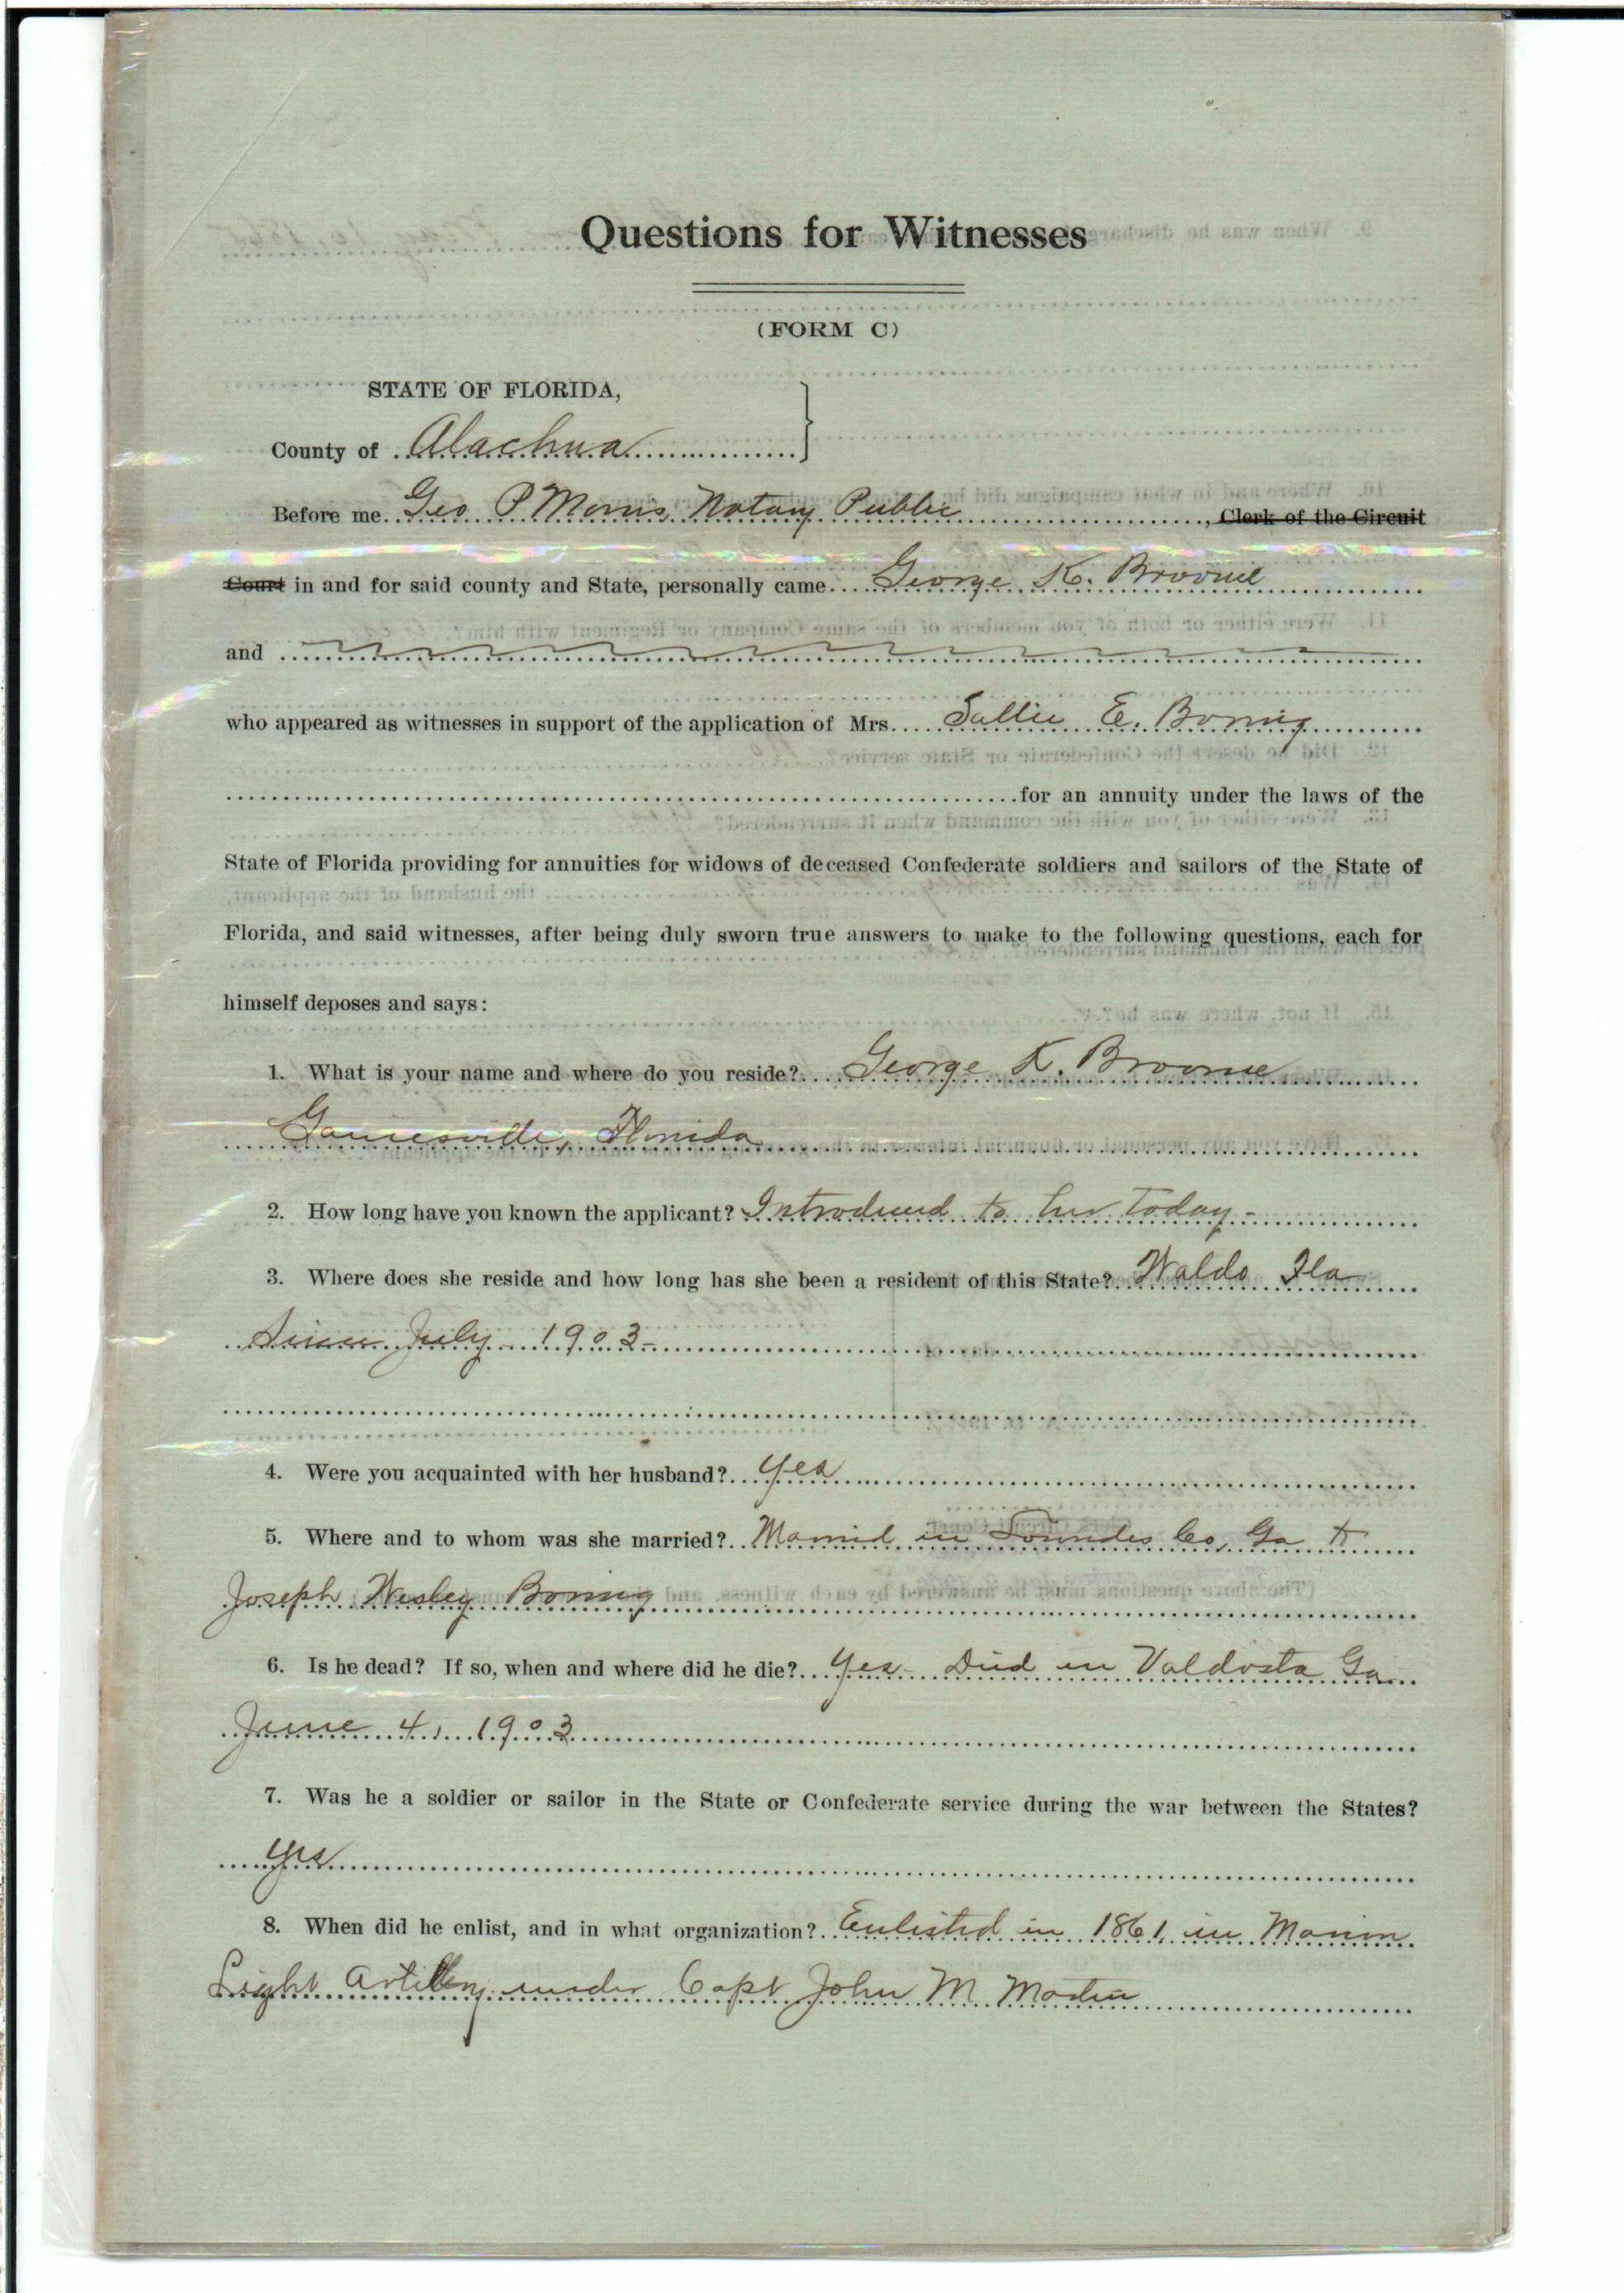 Questions for Witnesses
(FORM C)
STATE OF FLORIDA,
County of Alachua
Before me Geo P Morris, Notary Public, Clerk of the Circuit
Court in and for said county and State, personally came George K. Broome
and
who appeared as witnesses in support of the application of Mrs. Sallie E. Boring
for an annuity under the laws of the
State of Florida providing for annuities for widows of deceased Confederate soldiers and sailors of the State of
Florida, and said witnesses, after being duly sworn true answers to make to the following questions, each for
himself deposes and says:
1. What is your name and where do you reside? George K. Broome
Gainesville, Florida
2. How long have you known the applicant? Introduced to her today -
3. Where does she reside and how long has she been a resident of this State? Waldo Fla
Since July 1903-
4. Were you acquainted with her husband? Yes
5. Where and to whom was she married? Married in Lowndes Co, Ga to
Joseph Wesley Boring
6. Is he dead? If so, when and where did he die? Yes - Died in Valdosta Ga
June 4, 1903
7. Was he a soldier or sailor in the State or Confederate service during the war between the States?
Yes
8. When did he enlist, and in what organization? Enlisted in 1861, in Marion
Light Artillery under Capt John M Martin